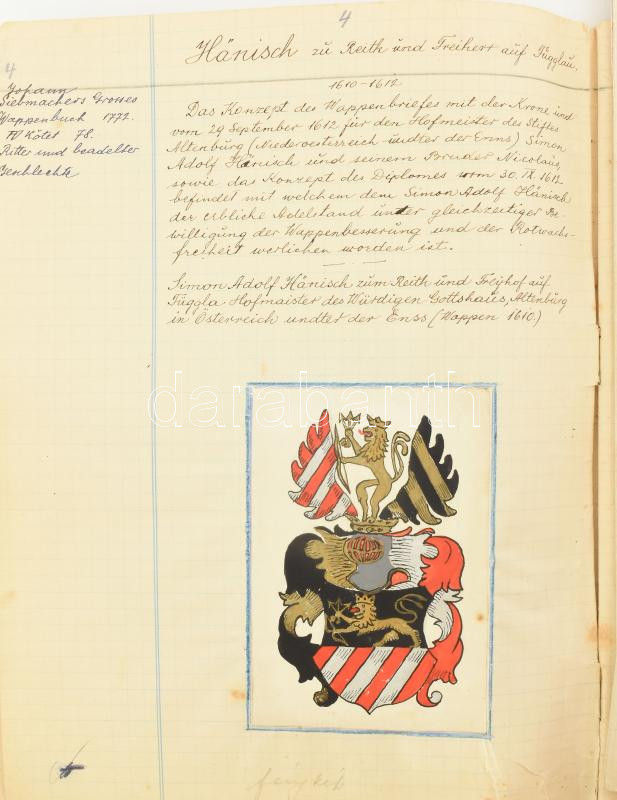 4
Hänisch zu Reith und Freiherr auf Függlau.
1610-1612
4
Johann
Siebmachers Grosses
Wappenbuch 1772.
IV Kötet 78.
Ritter und beadelter
Geschlechte
Das Konzept des Wappenbriefes mit der Krone und
vom 29 September 1612 für den Hofmeister des Stiftes
Altenburg (Niederoesterreich undter der Enns) Simon
Adolf Hänisch und seinem Bruder Nicolaus,
sowie das Konzept des Diplomes vom 30. IX. 1612
befindet mit welchem dem Simon Adolf Hänisch
der erbliche Adelstand unter gleichzeitiger Be-
willigung der Wappenbesserung und der Rotwachs-
freiheit verliehen worden ist.
Simon Adolf Hänisch zum Reith und Freyhof auf
Függla Hofmaister des Würdigen Gottshaus, Altenburg
in Österreich undter der Enss (Wappen 1610.)
darabanth
fénykép